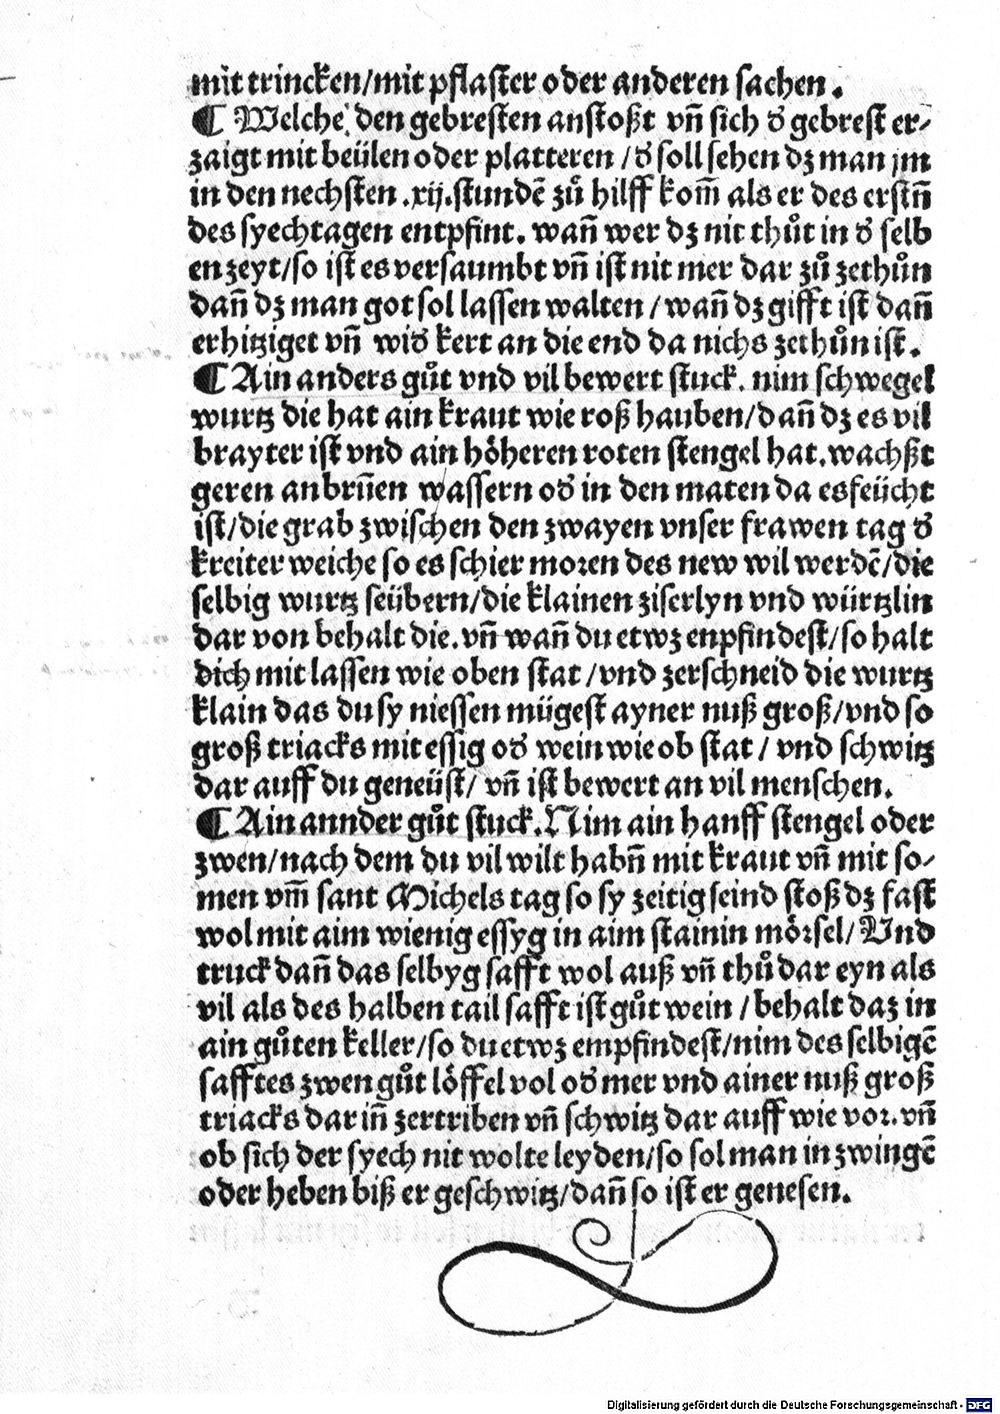 mit trincken/mit pflaster oder anderen sachen.
¶ Welchē den gebresten anstoßt vñ sich d̛ gebrest er⸗
zaigt mit beülen oder platteren /d̛ soll sehen dz man jm
in den nechsten .xij.stundē zů hilff kom̄ als er des erstñ
des syechtagen entpfint. wañ wer dz nit thůt in d̛ selb
en zeyt/so ist es versaumbt vñ ist nit mer dar zů zethůn
dañ dz man got sol lassen walten /wañ dz gifft ist dañ
erhitziget vñ wid̛ kert an die end da nichs zethůn ist.
¶ Ain anders gůt vnd vil bewert stuck. nim schwegel
wurtz die hat ain kraut wie roß hauben/dañ dz es vil
brayter ist vnd ain höheren roten stengel hat.wachßt
geren an brūen wassern od̛ in den maten da es feücht
ist/die grab zwischen den zwayen vnser frawen tag d̛
kreiter weiche so es schier moren des new wil werdē/die
selbig wurtz seübern/die klainen ziserlyn vnd würtzlin
dar von behalt die.vñ wañ du etwz enpfindest/so halt
dich mit lassen wie oben stat /vnd zerschneid die wurtz
klain das du sy niessen mügest ayner nuß groß/vnd so
groß triacks mit essig od̛ wein wie ob stat / vnd schwitz
dar auff du geneüst/ vñ ist bewert an vil menschen.
¶ Ain annder gůt stuck.Nim ain hanff stengel oder
zwen/nach dem du vil wilt habñ mit kraut vñ mit so⸗
men vm̄ sant Michels tag so sy zeitig seind stoß dz fast
wol mit aim wienig essyg in aim stainin mörsel/ Vnd
truck dañ das selbyg safft wol auß vñ thů dar eyn als
vil als des halben tail safft ist gůt wein /behalt daz in
ain gůten keller/so du etwz empfindest/nim des selbigē
safftes zwen gůt löffel vol od̛ mer vnd ainer nuß groß
triacks dar iñ zertriben vñ schwitz dar auff wie vor. vñ
ob sich der syech nit wolte leyden/so sol man in zwingē
oder heben biß er geschwitz/dañ so ist er genesen.
Digitalisierung gefördert durch die Deutsche Forschungsgemeinschaft - DFG